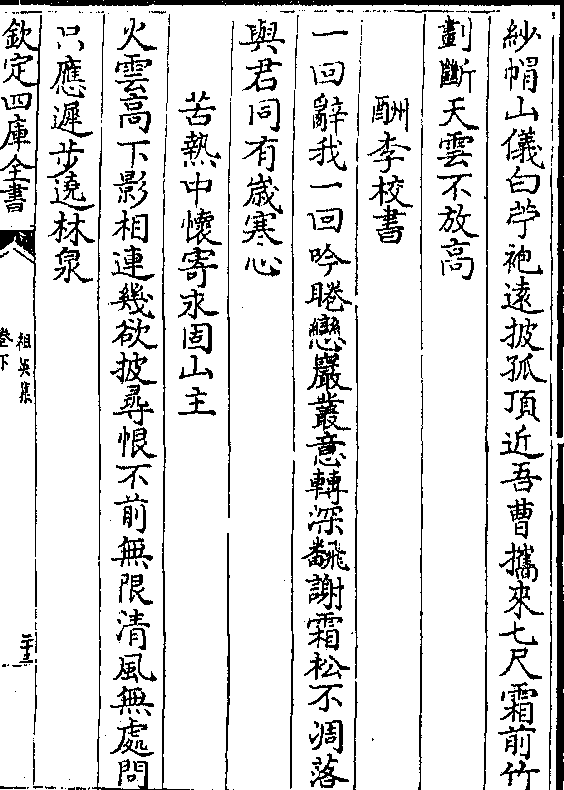 紗帽山儀白苧袍遠披孤頂近吾曹攜來七尺霜前竹
劃斷天雲不放高
酬李校書
一回辭我一回吟睠戀巖叢意轉深飜謝霜松不凋落
與君同有歲寒心
苦熱中懷寄永固山主
火雲高下影相連幾欲披尋恨不前無限清風無處問
只應遲步遶林泉
欽定四庫全書
祖英集
卷下
二十三